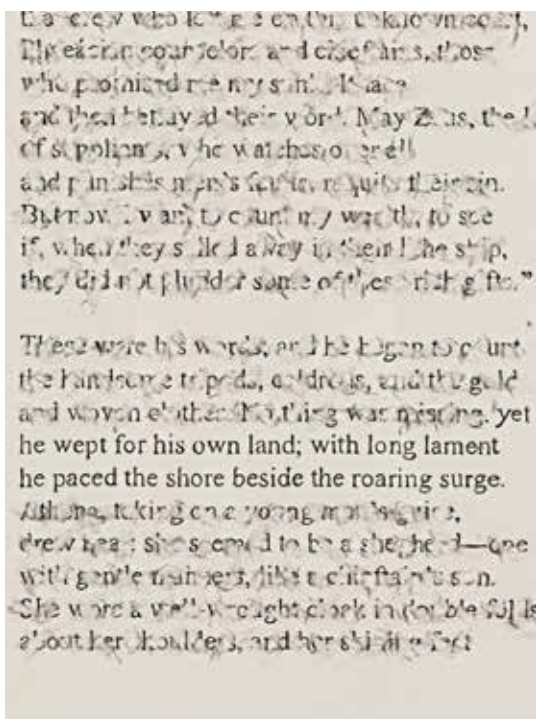 who
and chieftains, those
who promised me my
and then betrayed their word. May Zeus, the
of suppliants, who watches over all
and punishes men's requite their sin.
But now I want to count my wealth, to see
if, when they sailed away in their ship,
they did not plunder some of these rich gifts.”
These were his words, and he began to count
the handsome tripods, caldrons, and the gold
and woven clothes. Nothing was missing. yet
he wept for his own land; with long lament
he paced the shore beside the roaring surge.
Athena, taking on a young man's guise,
drew near: she seemed to be a shepherd—one
with gentle manners, like a chieftain's son.
She wore a well-wrought cloak in double
about her shoulders, and her feet